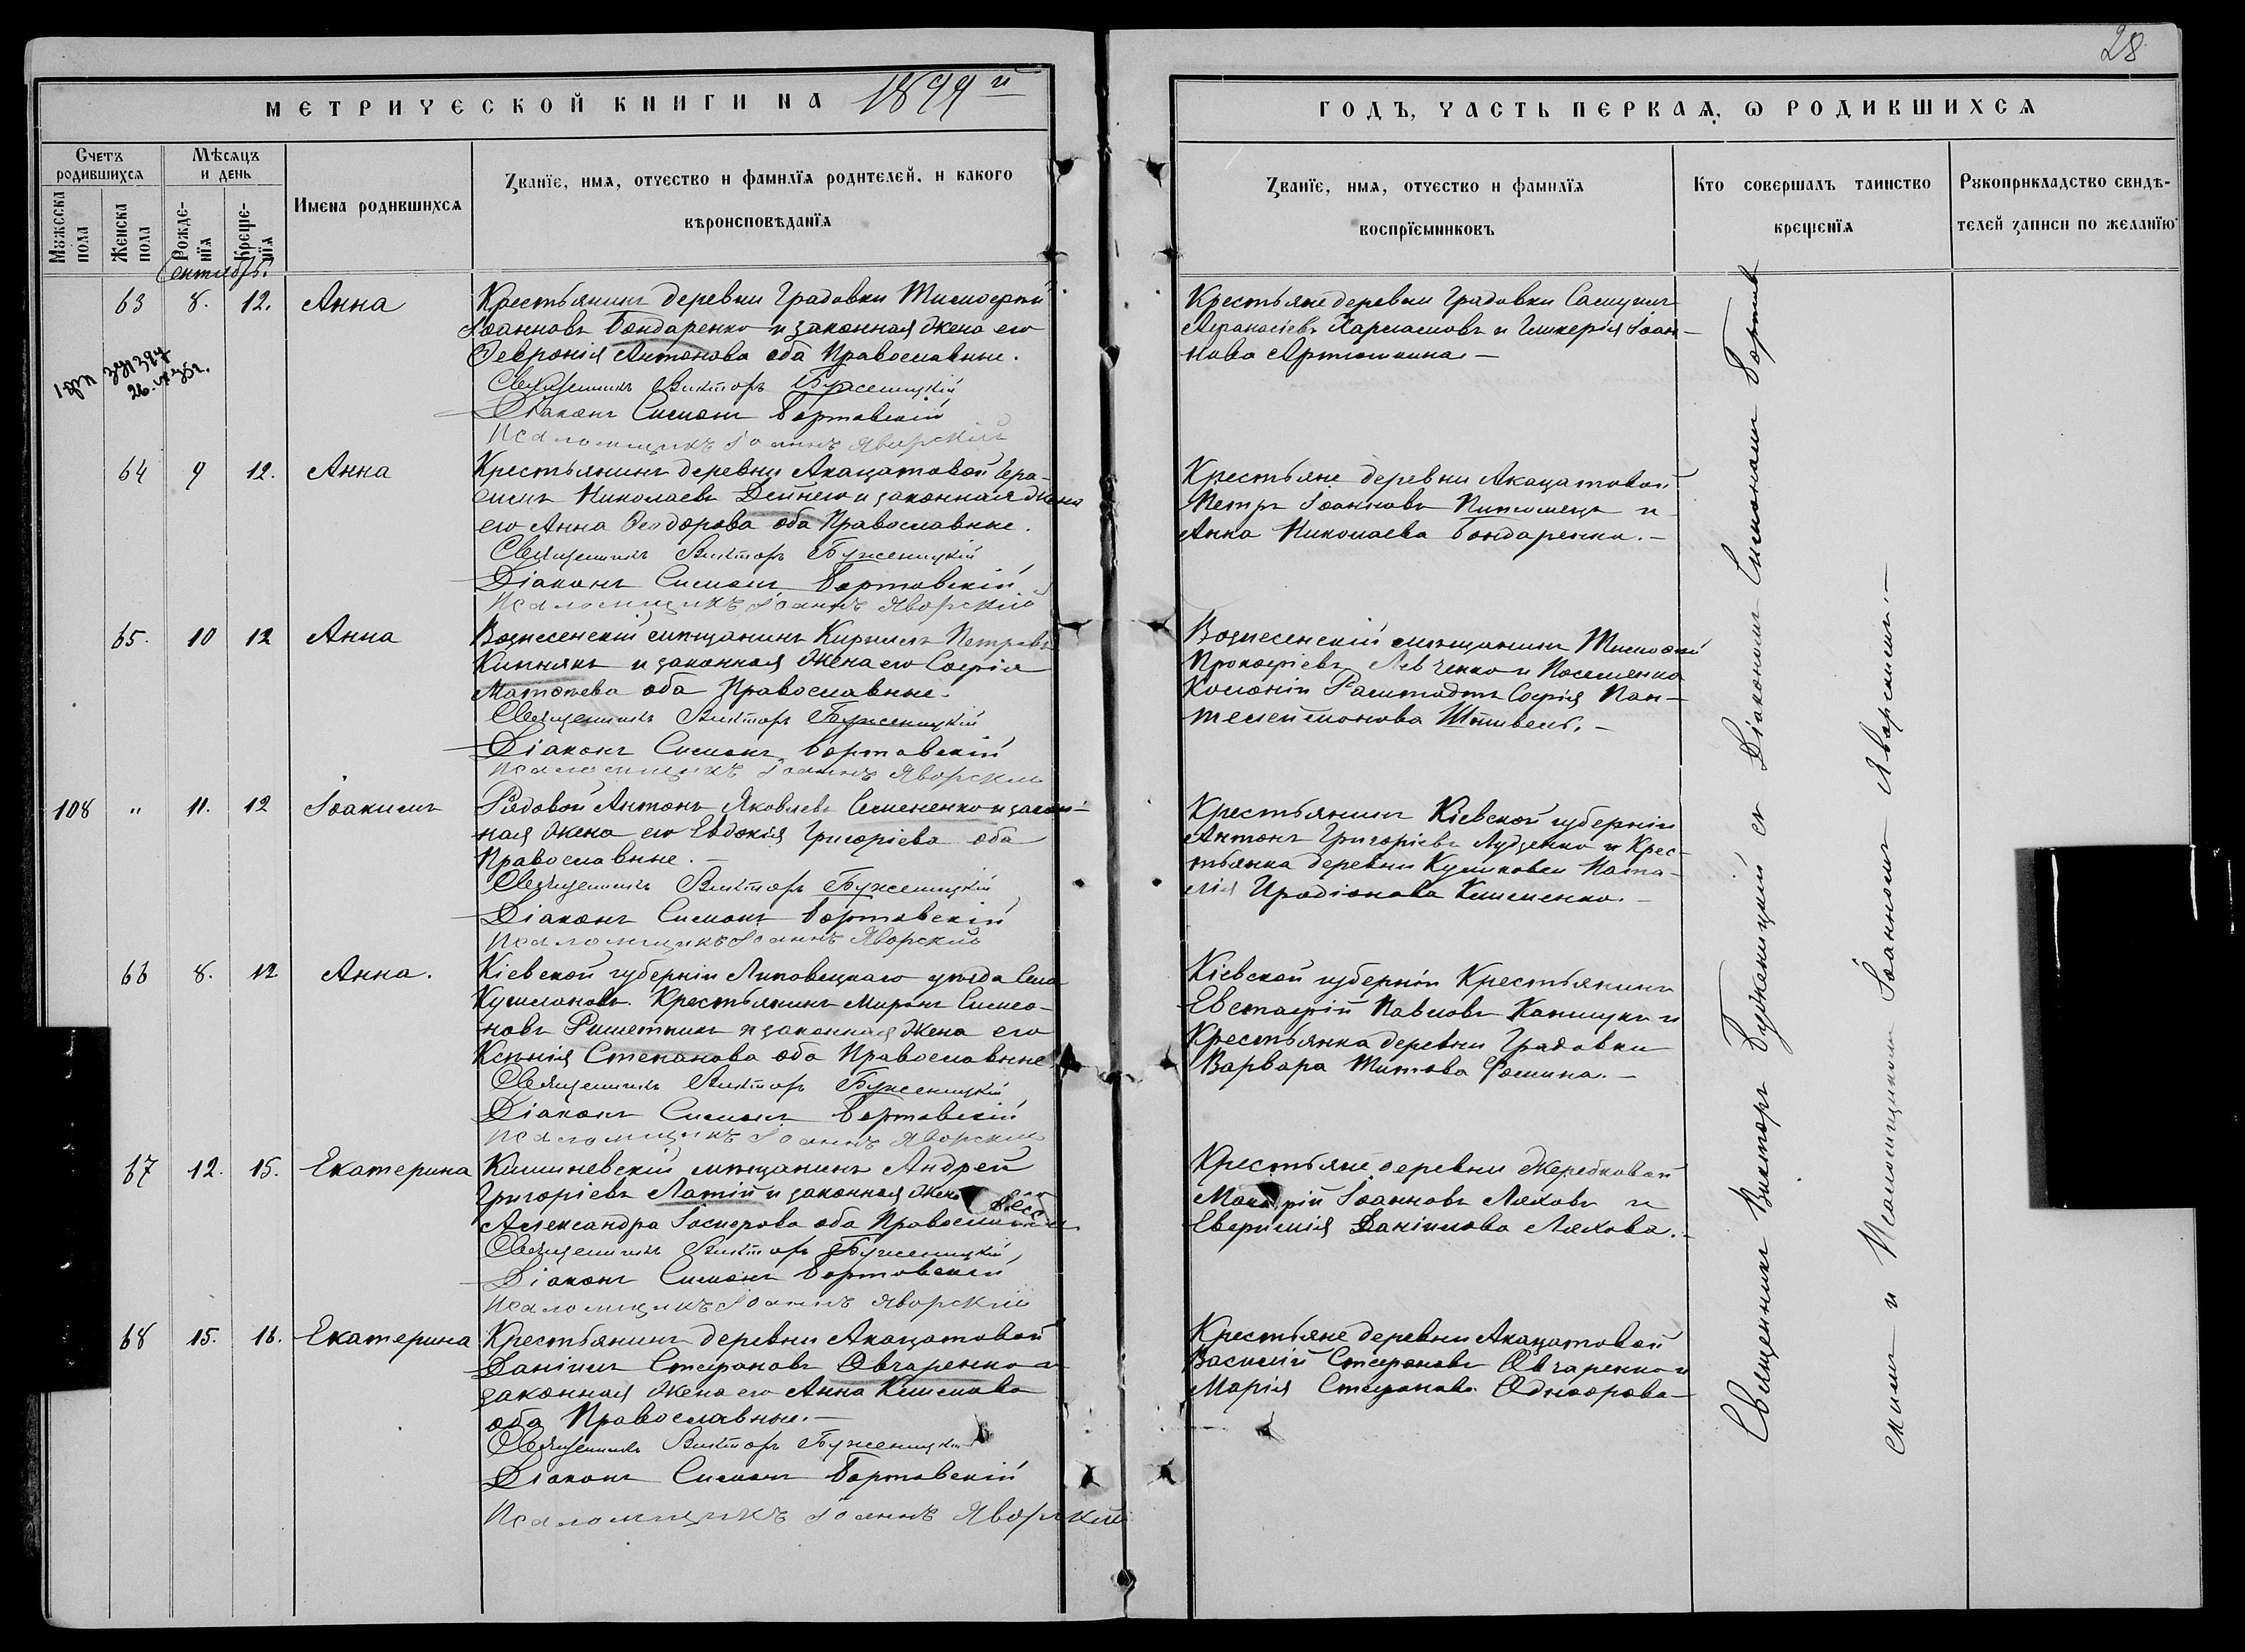 28
МЕТРИЧЕСКОЙ КНИГИ НА 1899 й
ГОДЪ, ЧАСТЬ ПЕРВАЯ, Ѡ РОДИВШИХСЯ
Счетъ родившихся
Мѣсяцъ и день
Имена родившихся
Званїе, имя, отчество и фамилїя родителей, и какого
вѣроисповѣданїя
Мужеска пола
Женска пола
Рожденїя
Крещенїя
Званїе, имя, отчество и фамилїя
воспрїемниковъ
Кто совершалъ таинство
крещенїя
Рукоприкладство свидѣ-
телей записи по желанїю
Сентябрь.
63 8. 12. Анна
Крестьянинъ деревни Градовки Тимофей
Іоанновъ Бондаренко и законная жена его
Февронія Антонова оба Православные.
Священникъ Викторъ Буженицкій
Діаконъ Симеонъ Бортовскій
Псаломщикъ Іоаннъ Яворскій
Крестьяне деревни Градовки Самуилъ
Афанасіевъ Харламовъ и Гликерія Іоан-
нова Артюшина.—
64 9 12. Анна
Крестьянинъ деревни Акацатовой Гера-
симъ Николаевъ Дейнего и законная жена
его Анна Феодорова оба Православные.
Священникъ Викторъ Буженицкій
Діаконъ Симеонъ Бортовскій
Псаломщикъ Іоаннъ Яворскій
Крестьяне деревни Акацатовой
Петръ Іоанновъ Питомецъ и
Анна Николаева Бондаренко.—
65. 10 12 Анна
Вознесенскій мѣщанинъ Кириллъ Петровъ
Кипнякъ и законная жена его Софія
Матѳеева оба Православные.
Священникъ Викторъ Буженицкій
Діаконъ Симеонъ Бортовскій
Псаломщикъ Іоаннъ Яворскій
Вознесенскій мѣщанинъ Тимофей
Прокофіевъ Левченко и Поселянка
Колоніи Раштадтъ Софія Пан-
телеймонова Штивель.—
108 " 11. 12 Іоакимъ
Рядовой Антонъ Яковлевъ Семененко и закон-
ная жена его Евдокія Григоріева оба
Православные.—
Священникъ Викторъ Буженицкій
Діаконъ Симеонъ Бортовскій
Псаломщикъ Іоаннъ Яворскій
Крестьянинъ Кіевской губерніи
Антонъ Григоріевъ Лудзенко и Крес-
тьянка деревни Куликовки Ната-
лія Иродіонова Клименко.—
66 8. 12 Анна.
Кіевской губерніи Липовецкаго уѣзда Села
Крестьянинъ Миронъ Симео-
новъ Решетникъ и законная жена его
Ксенія Степанова оба Православные
Священникъ Викторъ Буженицкій
Діаконъ Симеонъ Бортовскій
Псаломщикъ Іоаннъ Яворскій
Кіевской губерніи Крестьянинъ
Евстафій Павловъ и
Крестьянка деревни Градовки
Варвара Титова Фомина.—
67 12. 15. Екатерина
Кишиневскій мѣщанинъ Андрей
Григоріевъ Латій и законная жена
Александра Іосифова оба Православные
Священникъ Викторъ Буженицкій
Діаконъ Симеонъ Бортовскій
Псаломщикъ Іоаннъ Яворскій
Крестьяне деревни Жеребковой
Макарій Іоанновъ Ляховъ и
Евфимія Даніилова Ляхова.—
68 15. 16. Екатерина
Крестьянинъ деревни Акацатовой
Даніилъ Стефановъ Овчаренко и
законная жена его Анна Климова
оба Православные.—
Священникъ Викторъ Буженицкій
Діаконъ Симеонъ Бортовскій
Псаломщикъ Іоаннъ Яворскій
Крестьяне деревни Акацатовой
Василій Стефановъ Овчаренко и
Марія Стефанова Одноорова—
Священникъ Викторъ Буженицкій съ Діакономъ Симеономъ Бортов-
скимъ и Псаломщикомъ Іоанномъ Яворскимъ.—